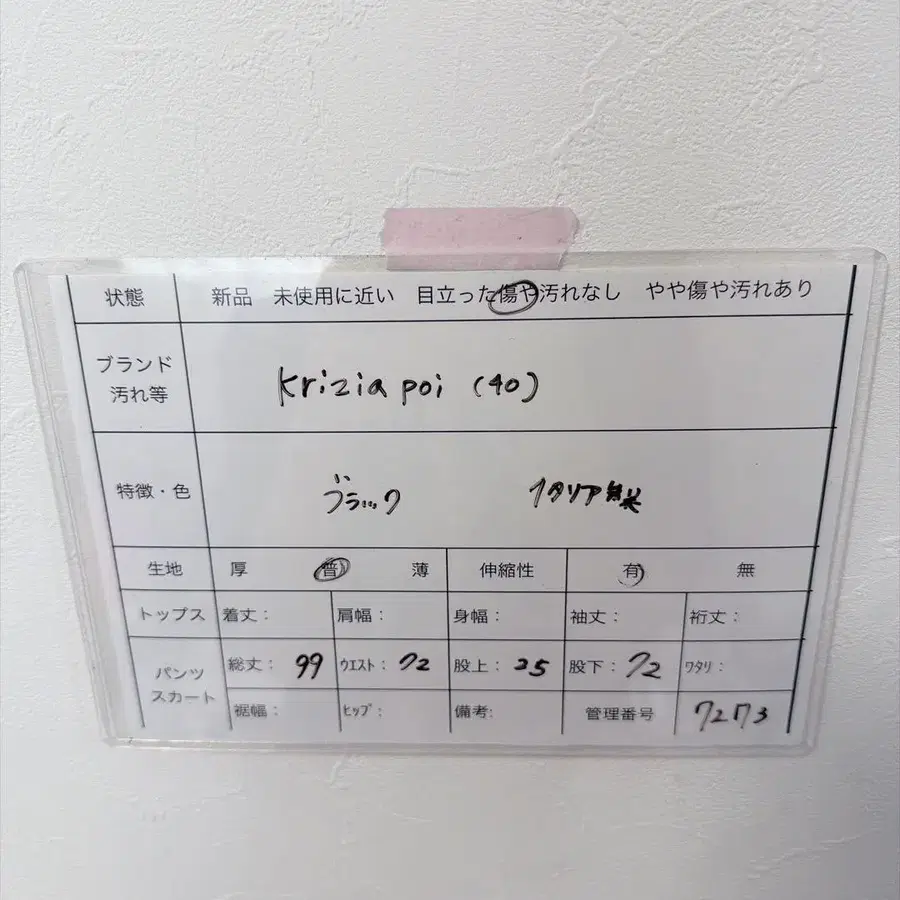 状態 新品 未使用に近い 目立った傷や汚れなし やや傷や汚れあり
ブランド
汚れ等 krizia poi (40)
特徴・色 ブラック イタリア製
生地 厚 普 薄 伸縮性 有 無
トップス 着丈: 肩幅: 身幅: 袖丈: 裄丈:
パンツ
スカート 総丈: 99 ウエスト: 72 股上: 25 股下: 72 ワタリ:
裾幅: ヒップ: 備考: 管理番号 7273